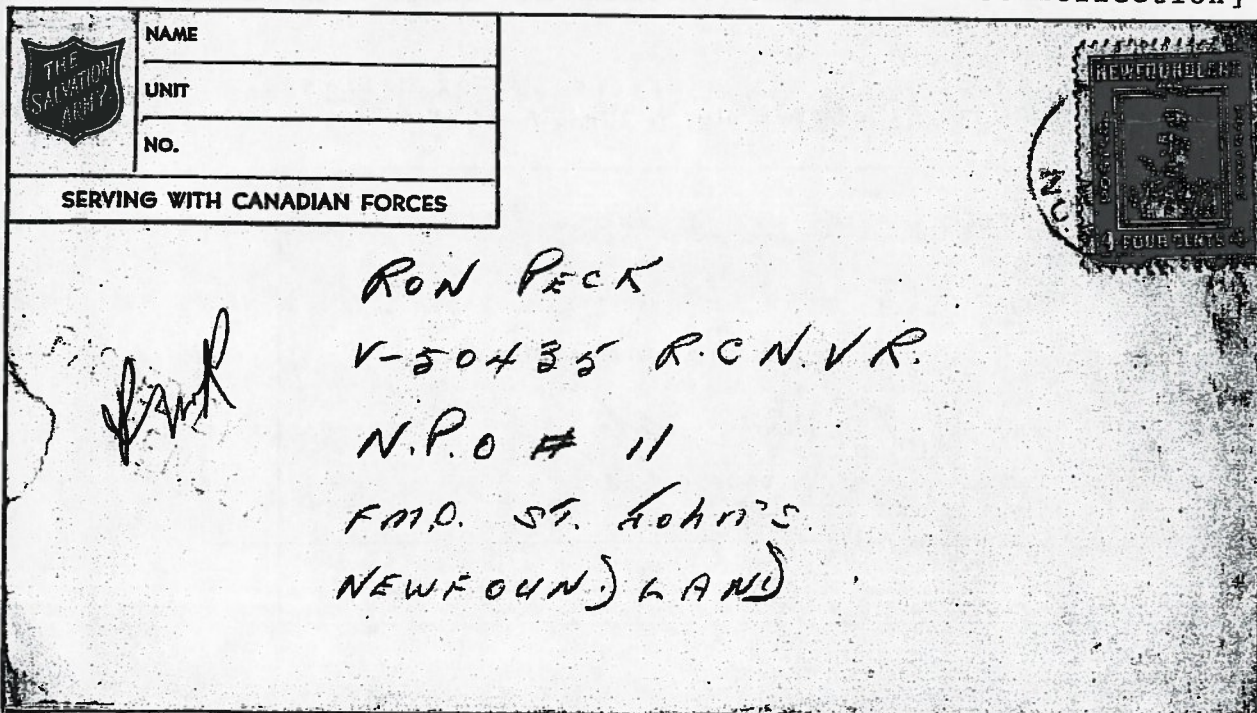 THE
SALVATION
ARMY
NAME
UNIT
NO.
SERVING WITH CANADIAN FORCES
NEWFOUNDLAND
POSTAGE
4 FOUR CENTS 4
NO.
RON PECK
V-50435 R.C.N.V.R.
N.P.O # 11
FMD. ST. John's.
NEWFOUNDLAND